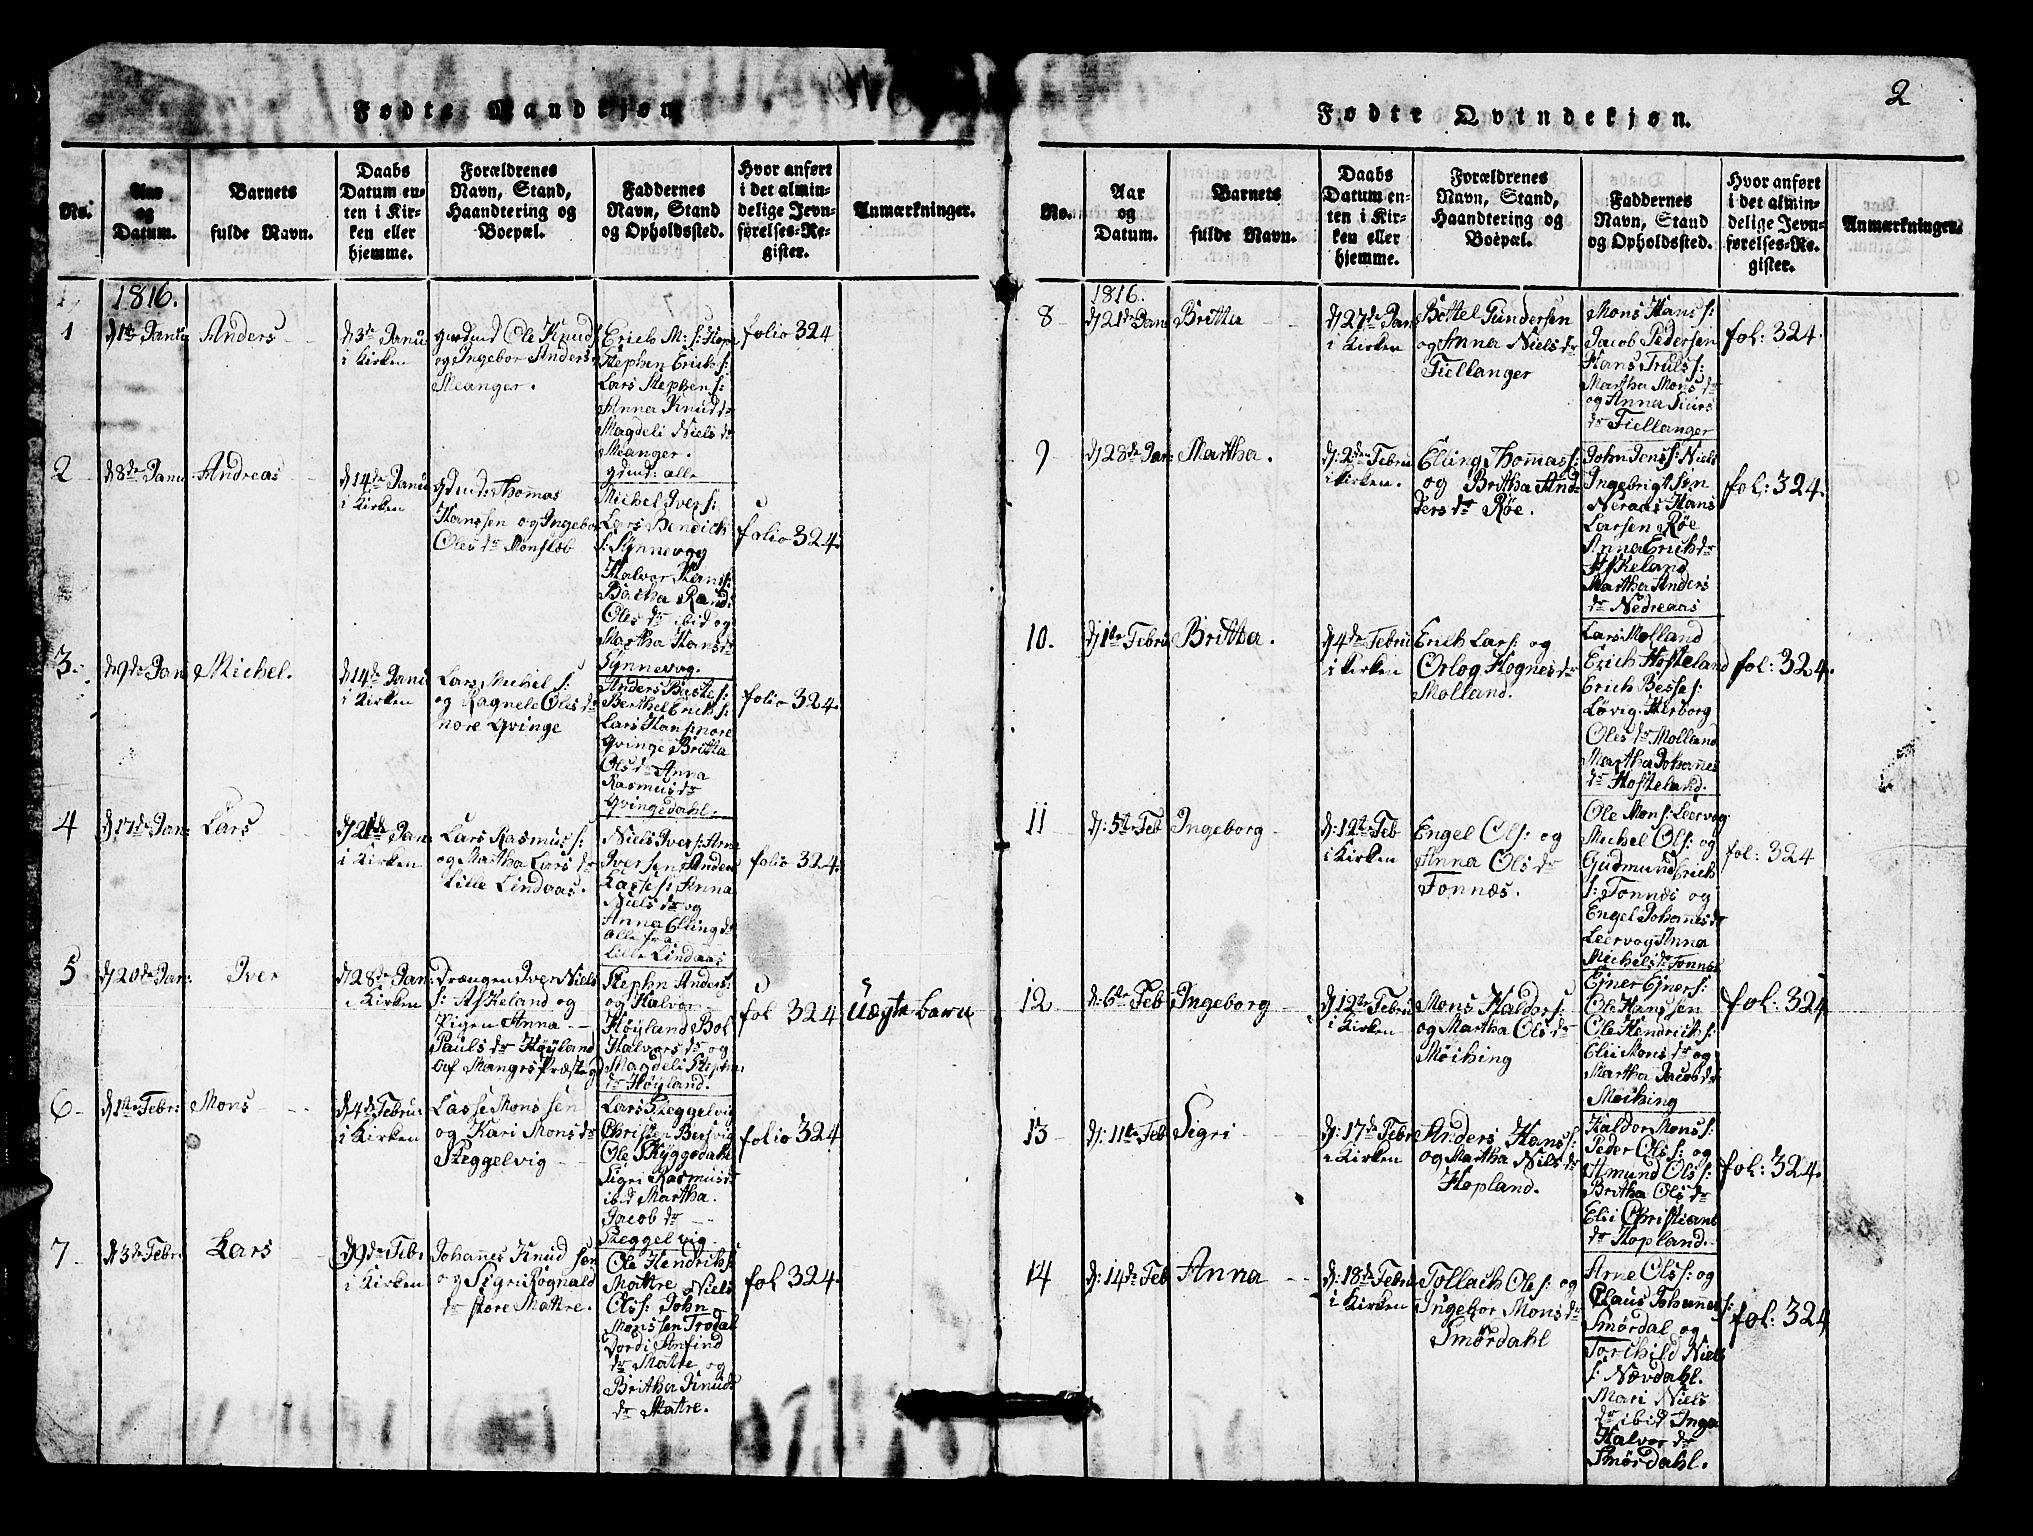 2
Fødte Mandkjøn
No.
Aar
og
Datum.
Barnets
fulde Navn.
Daabs
Datum en-
ten i Kir-
ken eller
hjemme.
Forældrenes
Navn, Stand,
Haandtering og
Boepæl.
Faddernes
Navn, Stand
og Opholdssted.
Hvor anført
i det almin-
delige Jevn-
førelses-Re-
gister.
Anmærkninger.
1816.
1
d 1te Janu
Anders
d 3de Janu
i Kirken
gudmd Ole Knuds
og Ingebor Anders
Meanger.
Erich M: s: Hope
Stephen Erich s:
Lars Stephen s:
Anna Knud dr
Magdeli Niels dr
Meanger.
gdmd: alle
folio 324
2
d 8de Janu
Andreas
d 14de Janu
i Kirken
gdmd: Thommas
Hanssen og Ingebor
Oles dr Monstøb
Michel Iver s:
Lars Bendich
s: Synnevog
Halvor Hans s:
Rand:
Oles dr ibid og
Martha Hans dr
Synnevog.
folio 324.
3.
d 9de Janu
Michel.
d 14de Janu
i Kirken
Lars Michel s:
og Ragnele Oles dr
nore Qvinge
Anders Baste s:
Berthel Erich s:
Lars Hans s: nore
Qvinge Britta
Ols dr Anna
Rasmus dr
Qvingedahl.
folio 324.
4
d 17de Jan:
Lars
d 21de Janu
i Kirken
Lars Rasmus s:
og Martha Lars dr
Lille Lindaas.
Niels Iver s: Arne
Iver sen Anders
Lasse s: Anna
Niels dr og
Anna Elling dr
alle fra
Lille Lindaas
folio 324.
5
d 20de Jan:
Iver
d 28de Jan
i Kirken
Drængen Iver Niels
s: Askeland og
Pigen Anna
Pauls dr Høyland
af Mangrs Præsteg
Stephn Anders:
og Halvor
Høyland Bol
Halvors dr og
Magdeli Stephn
dr Høyland.
fol 324
Uægte barn
6
d 1te Febr:
Mons
d 4de Febru
i Kirken
Lasse Mons sen
og Kari Mons dr
Steggelvig
Lars Steggelvig
Christen Bersvig
Ole Skyggedahl
Sigri Rasmus dr
ibid Martha
Jacob dr
Steggelvig
folio 324
7
d 3de Febr:
Lars
d 9de Febr
i Kirken
Johanes Knud sen
og Sigri Rognald
dr store Matre.
Ole Hendrich s
Matre Niels
Ols s: John
Monssen Trodal
Dordi Anfind
dr Matre og
Britha Knuds
dr Matre.
fol 324.
Fødte Qvindekjøn.
No.
Aar
og
Datum.
Barnets
fulde Navn.
Daabs
Datum en-
ten i Kir-
ken eller
hjemme.
Forældrenes
Navn, Stand,
Haandtering og
Boepæl.
Faddernes
Navn, Stand
og Opholdssted.
Hvor anført
i det almin-
delige Jevn-
førelses-Re-
gister.
Anmærkninger.
1816.
8
d 21de Janu
Britta
d 27de Janu
i Kirken
Bottel Gundersen
og Anna Niels dr
Fiellanger
Mons Hans s:
Jacob Pedersen
Hans Truls s:
Martha Mons dr
og Anna
dr Fiellanger
fol: 324.
9
d 28de Jan:
Martha.
d: 2den Febru
i Kirken.
Elling Thommas s:
og Britha And-
ders dr Røe.
John Jons s: Niels
Ingebrigtsen
Neraas Hans
Larsen Røe
Anna Erich dr
Askeland
Martha Anders
dr Nedreaas
fol: 324.
10.
d 1te Febru
Britta.
d 4de Febru
i Kirken
Erich Lars s: og
Orlog Hognes dr
Molland.
Lars Molland
Erich Hosteland
Erich Besse s:
Løvig Herborg
Oles dr Molland
Martha Johanes
dr Hosteland.
fol: 324.
11
d: 5te Feb
Ingeborg
d: 12te Feb
i Kirken
Engel Ols: og
Anna Ols dr
Fonnæs.
Ole Mons s: Leervog
Michel Ols: og
Gudmund Erich
s: Fonnæs og
Engel Johannes dr
Leervog Anna
Michels dr Fonnæs
fol: 324
12
d: 6te Feb
Ingeborg
d: 12te Febru
i Kirken
Mons Haldor s:
og Martha Ols dr
Moiking
Ejner Ejner s:
Ole Hanssen
Ole Hendrich s:
Elii Mons dr og
Martha Jacob dr
Moiking
fol: 324
13
d: 11te Feb
Sigri
d: 17de Febr
i Kirken
Anders Hans s:
og Martha Niels dr
Hopland.
Haldor Mons s:
Peder Ols s: og
Amund Ols s:
Britha Ols dr
Elii Christians
dr Hopland.
fol: 324.
14
d: 14de Feb
Anna
d: 18de Febru
i Kirken
Tollach Ole s: og
Ingebor Mons dr
Smørdahl
Arne Ols s: og
Claus Johannes s:
Smørdal og
Torchild Niels
s: Nævdahl.
Mari Niels
dr ibid Inga
Halvor dr
Smørdahl.
fol: 324